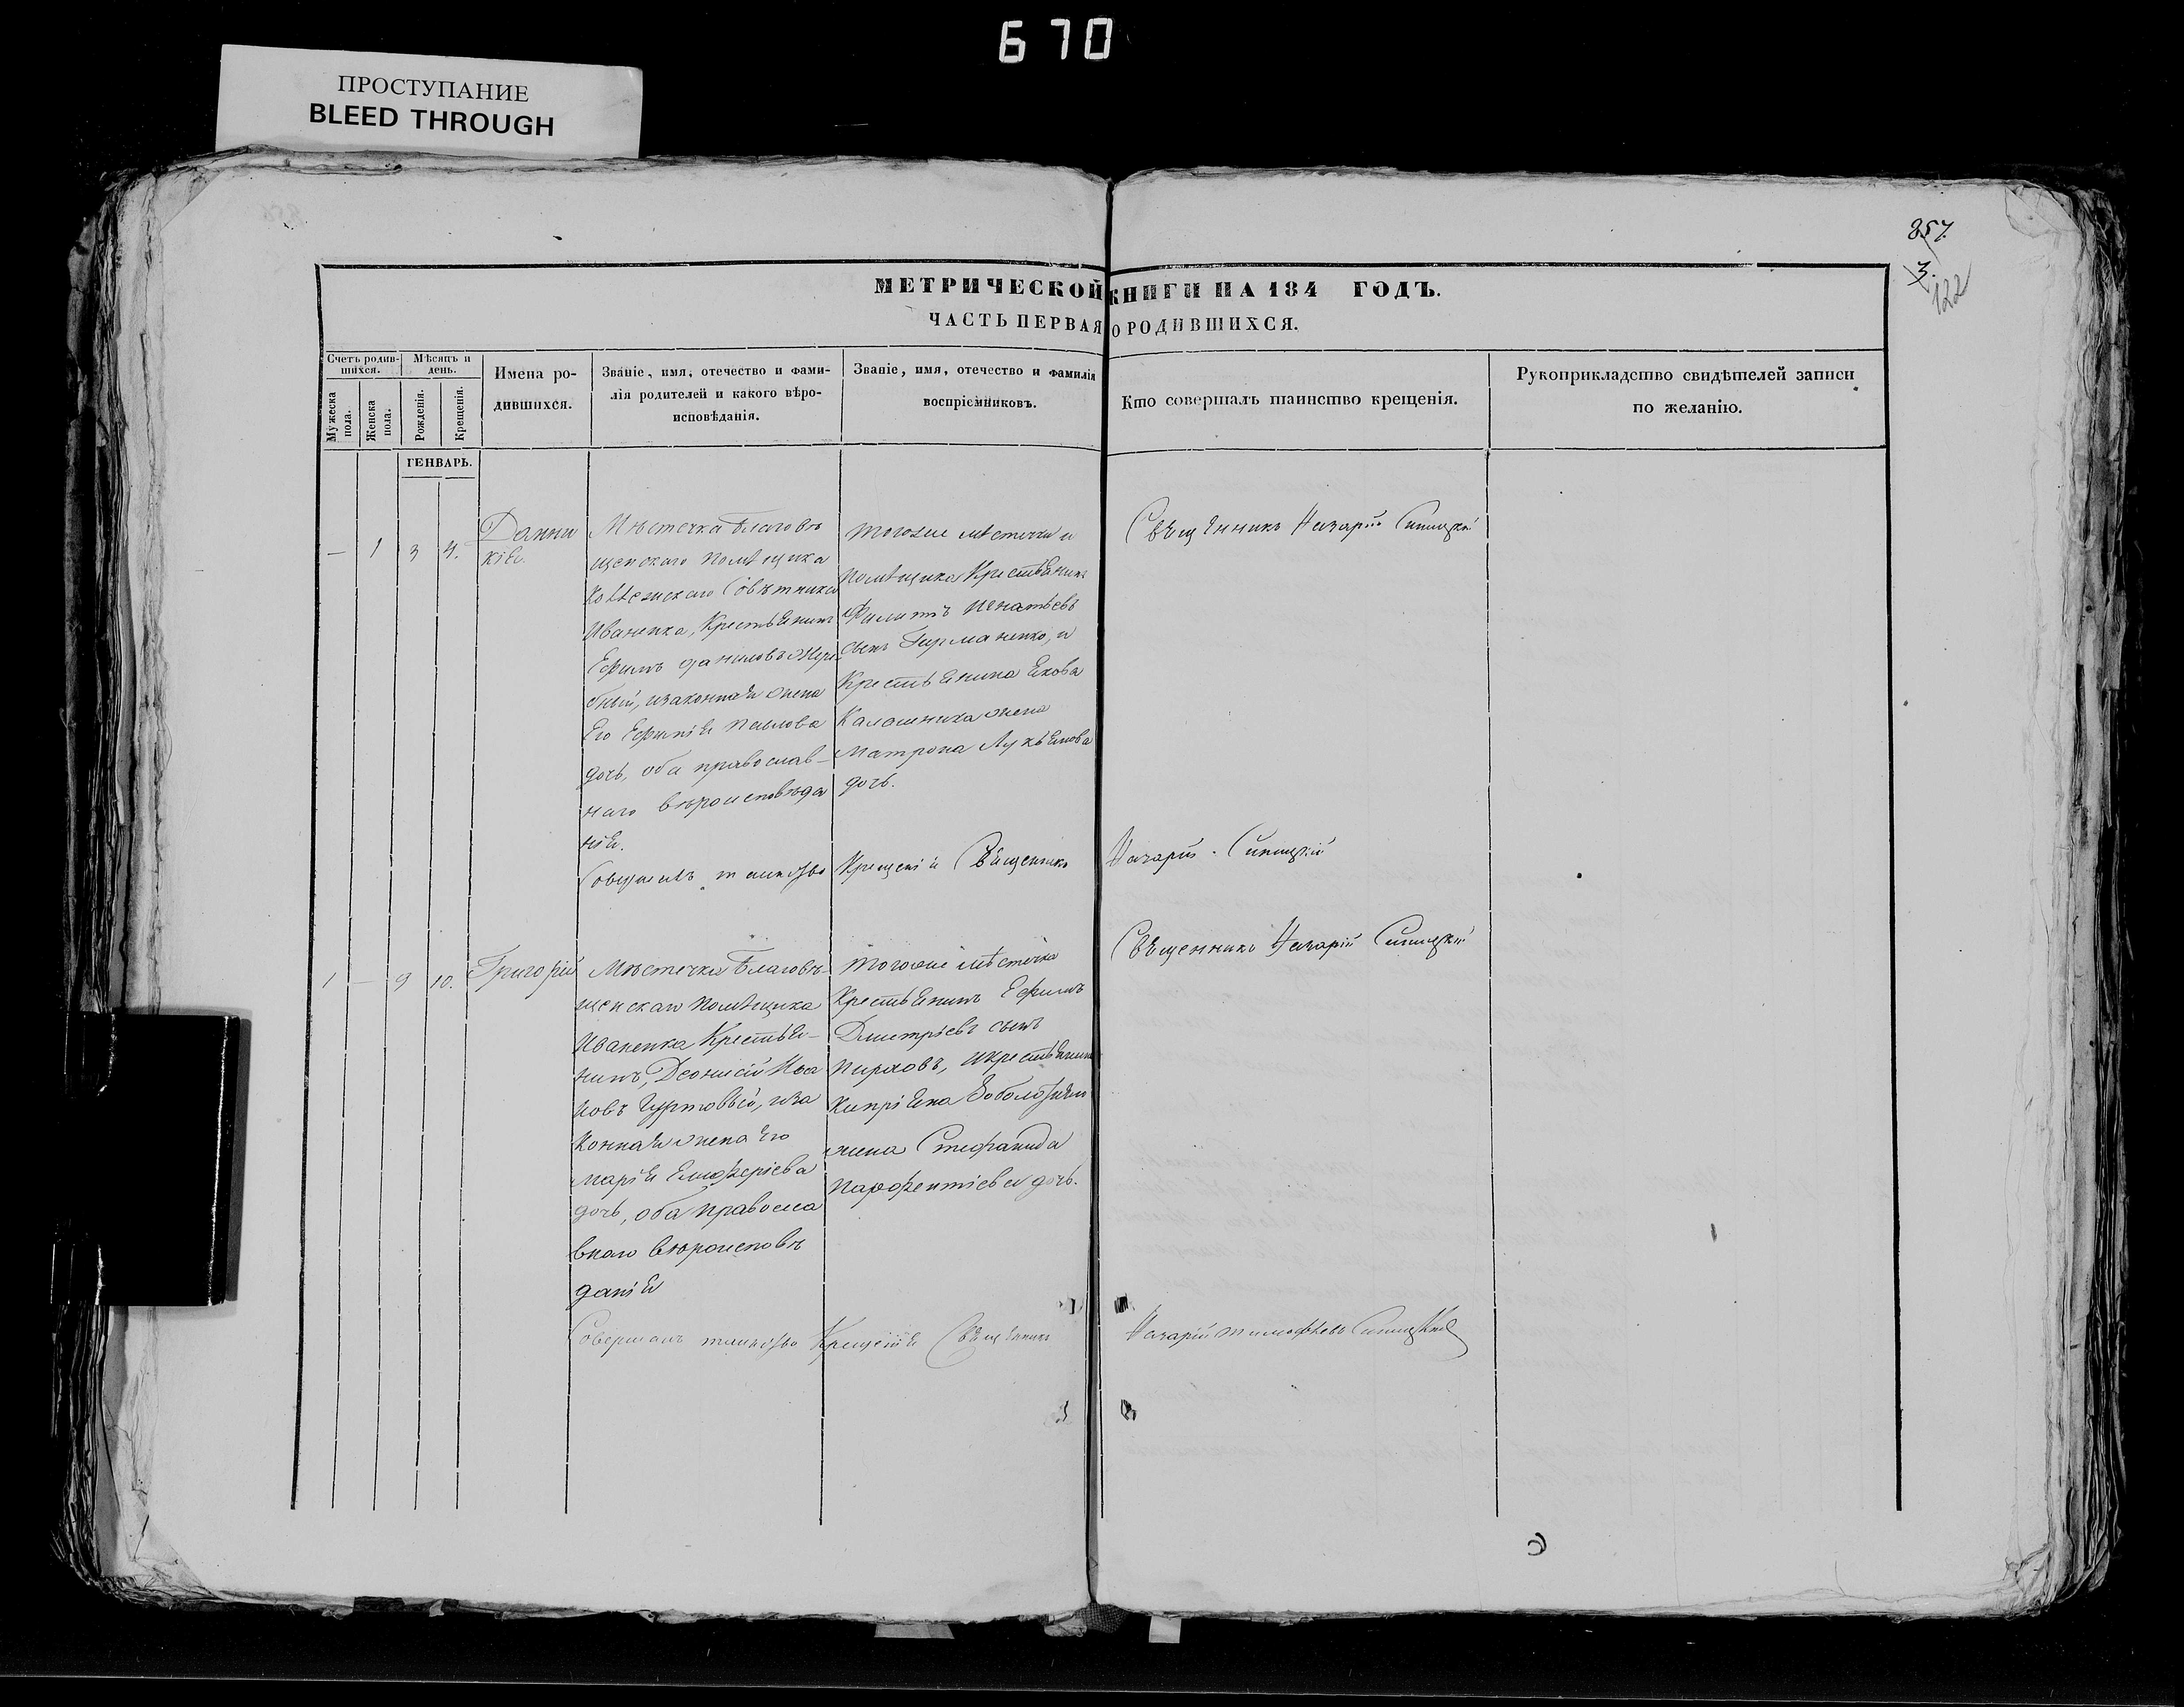 670
ПРОСТУПАНИЕ
BLEED THROUGH
857.
3.
122
МЕТРИЧЕСКОЙ КНИГИ НА 184 ГОДЪ.
ЧАСТЬ ПЕРВАЯ О РОДИВШИХСЯ.
Счетъ родив-
шихся.
Мѣсяцъ и
день.
Мужеска
пола.
Женска
пола.
Рожденія.
Крещенія.
Имена ро-
дившихся.
Званіе, имя, отечество и фами-
лія родителей и какого вѣро-
исповѣданія.
Званіе, имя, отечество и фамилія
воспріемниковъ.
Кто совершалъ таинство крещенія.
Рукоприкладство свидѣтелей записи
по желанію.
ГЕНВАРЬ.
— 1 3 4.
Домни
кія.
Мѣстечка Благовѣ
щенскаго помѣщика
Коллежскаго Совѣтника
Иваненка, Крестьянинъ
Ефимъ Даниловъ
бный, и законная жена
Его Ефимія Павлова
дочь, оба православ-
наго вѣроисповѣда
нія.
Тогоже мѣстечка и
помѣщика Крестьянинъ
Филиппъ Игнатьевъ
сынъ Гирманенко, и
Крестьянина Якова
Калашника жена
Матрона Лукьянова
дочь.
Священникъ Назарій Синицкій
Совершалъ таинство Крещенія Священникъ Назарій Синицкій
1 — 9 10.
Григорій
Мѣстечка Благовѣ-
щенскаго помѣщика
Иваненка Крестья-
нинъ, Деонисій Ива
новъ Чуртовый, и за
конная жена его
Марія Елифѣріева
дочь, оба правосла
внаго вѣроисповѣ
данія
Тогоже мѣстечка
Крестьянинъ Ефимъ
Дмитріевъ сынъ
Пироовъ, и крестьянина
Кипріяна
жена Стефанида
Парфентіева дочь.
Священникъ Назарій Синицкій
Совершалъ таинство Крещенія Священникъ Назарій Тимофѣевъ Синицкій